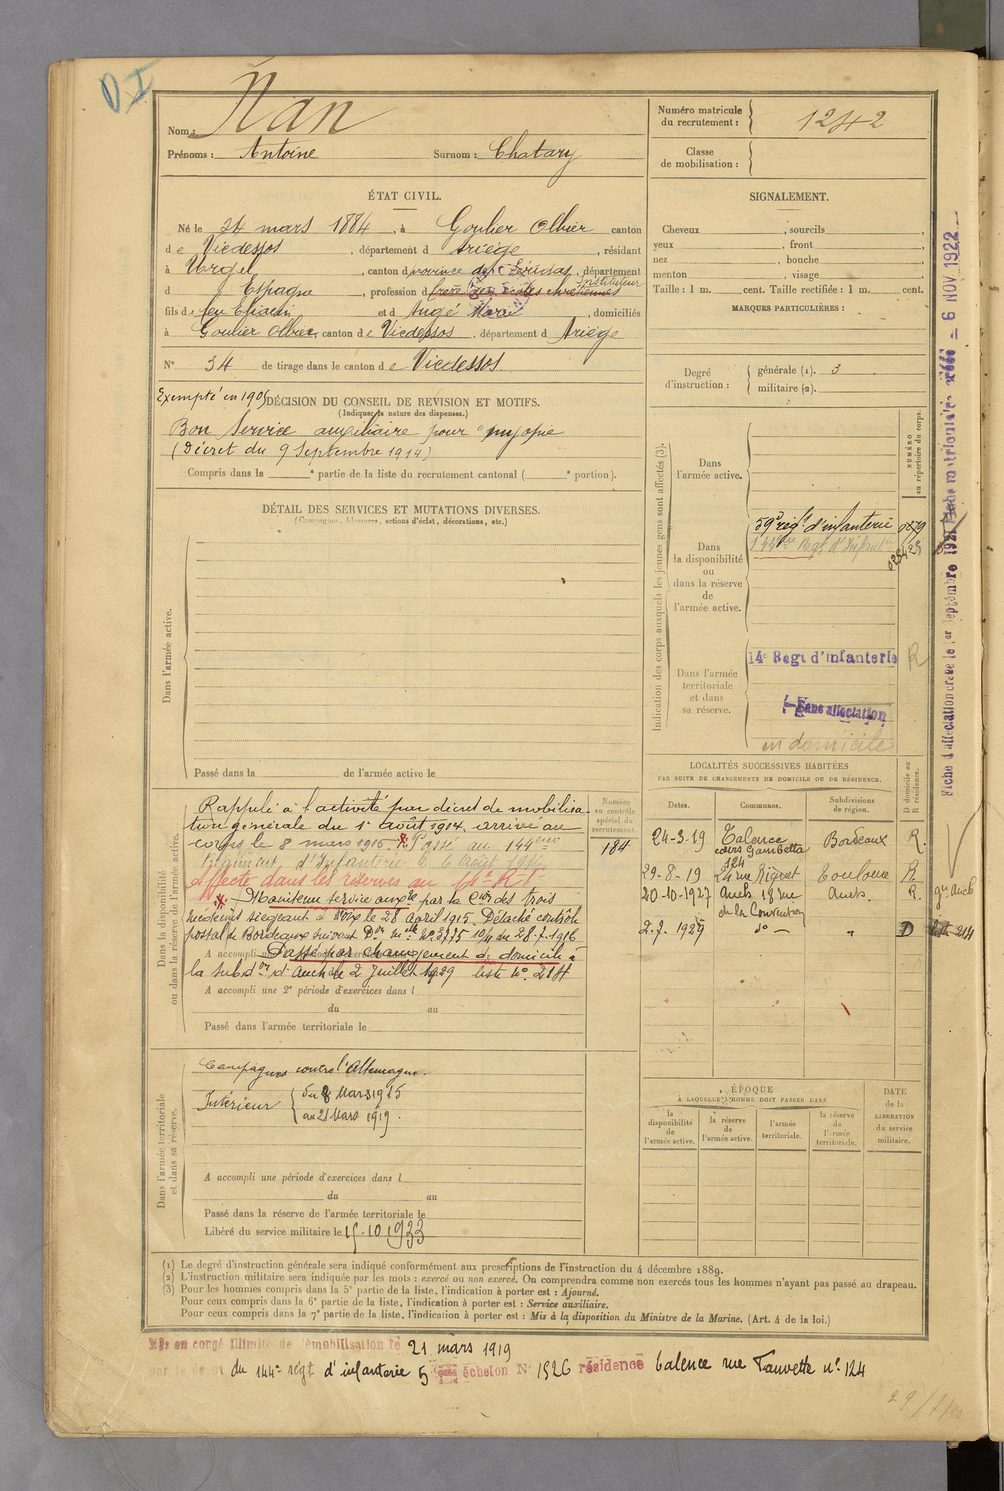 Nom : Nan
Prénoms : Antoine Surnom : Chatary
Numéro matricule du recrutement : 1242
Classe de mobilisation :
ÉTAT CIVIL.
Né le 24 mars 1884, à Goulier Olbier canton
de Vicdessos, département d Ariège, résidant
à Urgel, canton d province de Lérida, département
d Espagne, profession d frère des écoles chrétiennes instituteur
fils de feu et d Augé Marie, domiciliés
à Goulier Olbier canton de Vicdessos, département d Ariège
N° 34 de tirage dans le canton de Vicdessos
SIGNALEMENT.
Cheveux , sourcils ,
yeux , front ,
nez , bouche ,
menton , visage
Taille : 1 m. cent. Taille rectifiée : 1 m. cent.
MARQUES PARTICULIÈRES :
Degré d'instruction : générale (1). 3
militaire (2).
Exempté en 1905
DÉCISION DU CONSEIL DE REVISION ET MOTIFS.
(Indiquer la nature des dispenses.)
Bon Service auxiliaire pour "myopie
(Décret du 9 Septembre 1914)
Compris dans la ° partie de la liste du recrutement cantonal ( ° portion).
DÉTAIL DES SERVICES ET MUTATIONS DIVERSES.
(Campagnes, blessures, actions d'éclat, décorations, etc.)
Dans l'armée active.
Passé dans la de l'armée active le
Indication des corps auxquels les jeunes gens sont affectés (3).
NUMÉRO au répertoire du corps.
Dans l'armée active.
Dans la disponibilité ou dans la réserve de l'armée active.
59e régt d'infanterie
144me Regt d'Infant
Dans l'armée territoriale et dans sa réserve.
14e Regt d'infanterie R
Sans affectation
en domicile
Fiche d'affectation créée le 1er Septembre 1921
6 NOV 1922
LOCALITÉS SUCCESSIVES HABITÉES
PAR SUITE DE CHANGEMENTS DE DOMICILE OU DE RÉSIDENCE.
D domicile ou R résidence.
Dates. Communes. Subdivisions de région.
24-3-19 Talence cours Gambetta 124 Bordeaux R.
29-8-19 24 rue Riquet Toulouse R
20-10-1927 Auch 18 rue de la Convention Auch. R.
2.7.1929 d° " D
Dans la disponibilité ou dans la réserve de l'armée active.
Numéro au contrôle spécial du recrutement.
184
Rappelé à l'activité par décret de mobilisa
tion générale du 1er août 1914, arrivé au
corps le 8 mars 1915. Passé au 144eme
Régiment d'Infanterie le 6 Août 1916
Affecté dans les réserves au 14e R.I.
Maintenu service auxre par la Con des trois
médecins siégeant à le 28 avril 1915. Détaché contrôle
postal de Bordeaux suivant n° 3775 10/11 du 28-7-1916
Passé par changement de domicile à
la subdon d'Auch le 2 Juillet 1929 liste n° 214
A accompli une 2e période d'exercices dans l
du au
Passé dans l'armée territoriale le
Dans l'armée territoriale et dans sa réserve.
Campagnes contre l'Allemagne.
Intérieur du 8 Mars 1915
au 21 Mars 1919.
A accompli une période d'exercices dans l
du au
Passé dans la réserve de l'armée territoriale le
Libéré du service militaire le 15-10-1933
ÉPOQUE
À LAQUELLE L'HOMME DOIT PASSER DANS
la disponibilité de l'armée active.
la réserve de l'armée active.
l'armée territoriale.
la réserve de l'armée territoriale.
DATE de la LIBÉRATION du service militaire.
(1) Le degré d'instruction générale sera indiqué conformément aux prescriptions de l'instruction du 4 décembre 1889.
(2) L'instruction militaire sera indiquée par les mots : exercé ou non exercé. On comprendra comme non exercés tous les hommes n'ayant pas passé au drapeau.
(3) Pour les hommes compris dans la 5e partie de la liste, l'indication à porter est : Ajourné.
Pour ceux compris dans la 6e partie de la liste, l'indication à porter est : Service auxiliaire.
Pour ceux compris dans la 7e partie de la liste, l'indication à porter est : Mis à la disposition du Ministre de la Marine. (Art. 4 de la loi.)
Mis en congé illimité de démobilisation le 21 mars 1919
par le dépôt du 144e régt d'infanterie 5 échelon N° 1526 résidence Talence rue Fauvette n° 124